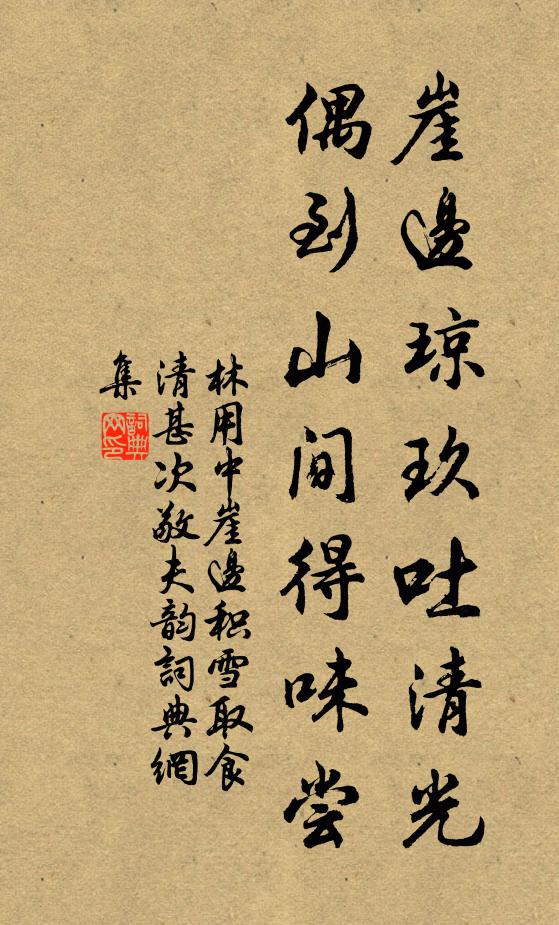 崖邊琼玖吐清光
偶到山间得味尝
林用中崖邊积雪取食
清甚次敬夫韵詞典網
集
詞典網印